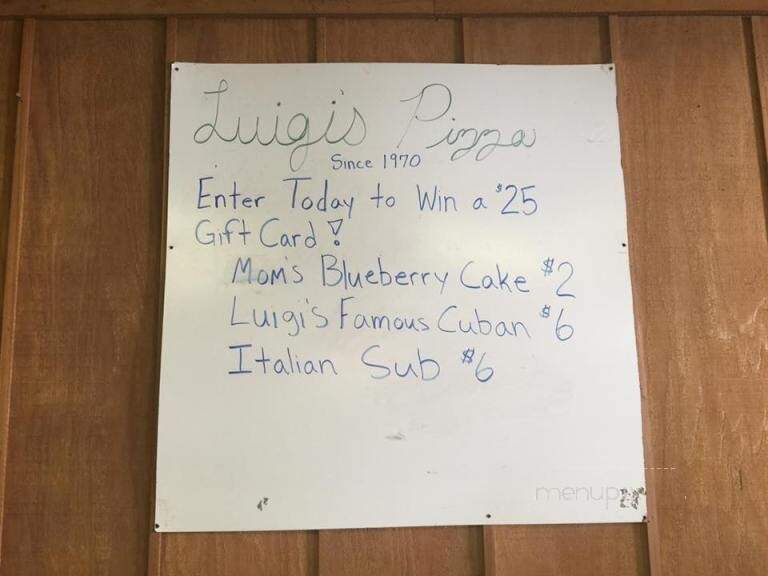 Luigi's Pizza
Since 1970
Enter Today to Win a $25
Gift Card!
Mom's Blueberry Cake $2
Luigi's Famous Cuban $6
Italian Sub $6